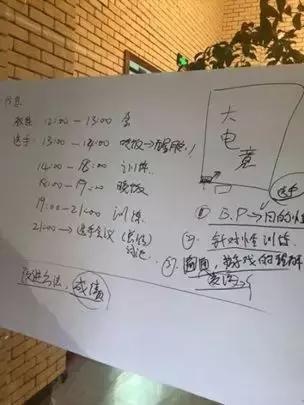 作息
教练 12:00 — 13:00
选手: 13:00 — 14:00 晚饭→醒
14:00 — 18:00 训练
18:00 — 19:00 晚饭
19:00 — 21:00 训练
21:00 → 选手会议 (总结
改进办法, 成绩
大电竞
选手
① B.P → 目的性
②. 针对性训练.
③. 游戏的理解